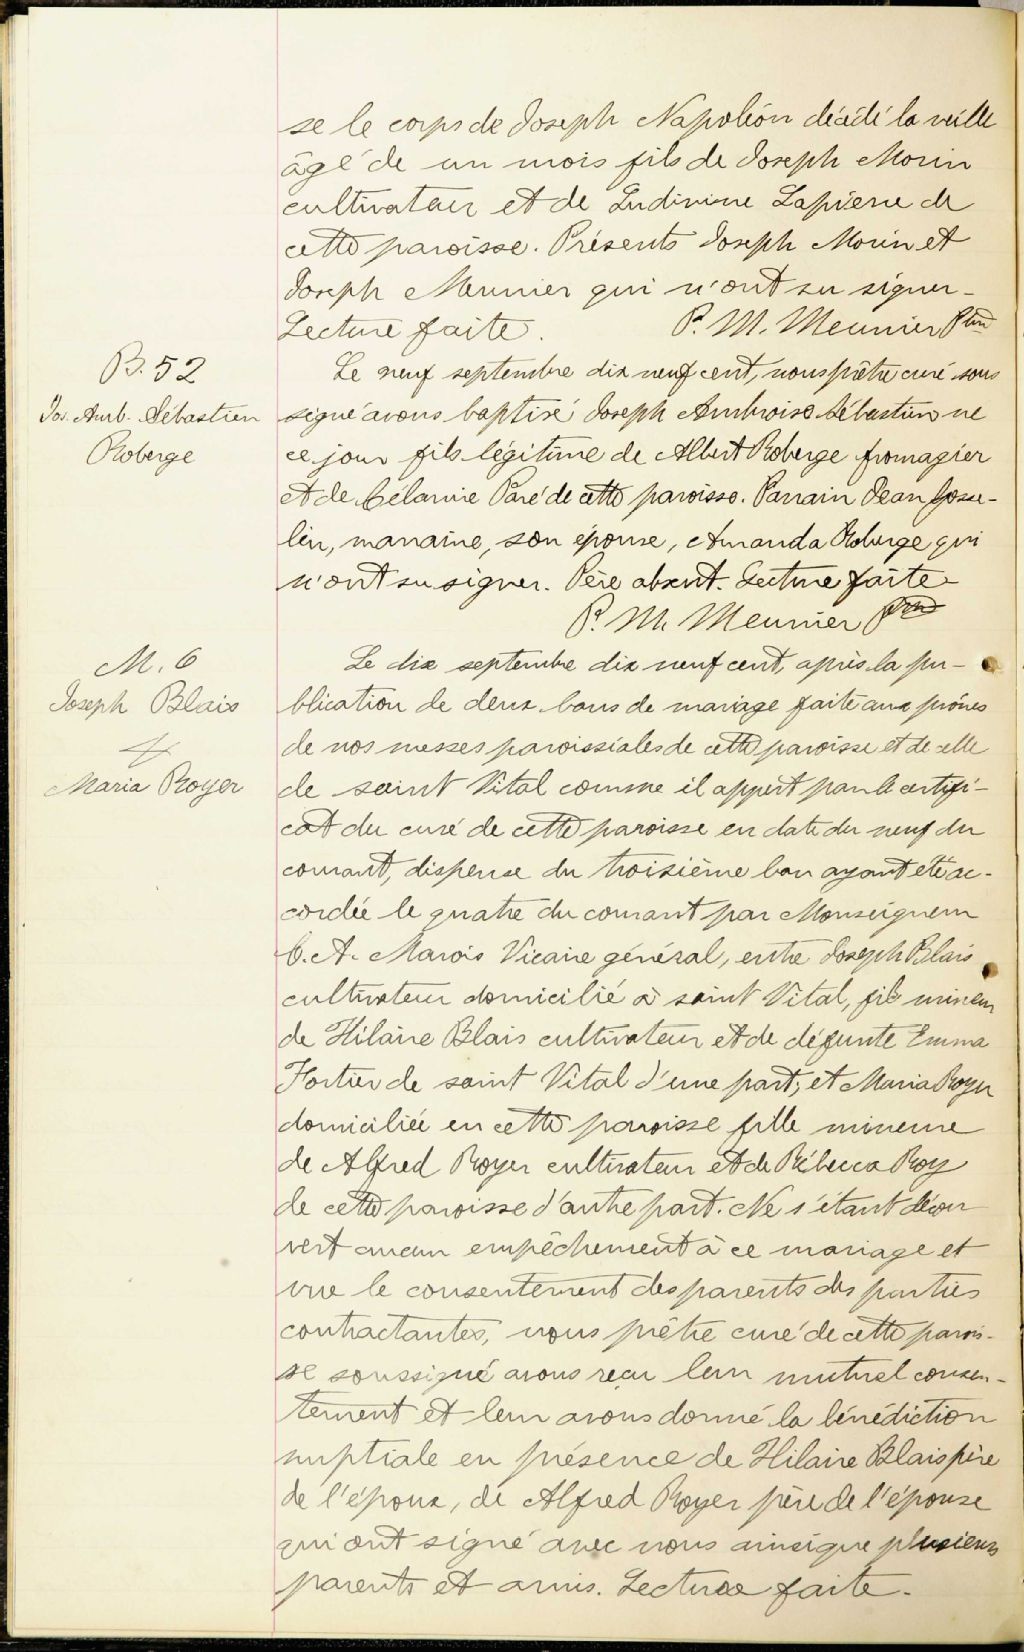 se le corps de Joseph Napoléon décédé la veille
âgé de un mois fils de Joseph Morin
cultivateur et de Ludivine Lapierre de
cette paroisse. Présents Joseph Morin et
Joseph Meunier qui n'ont su signer.
Lecture faite. P. M. Meunier Ptre
B. 52
Jos. Amb. Sébastien
Roberge
Le neuf septembre dix neuf cent, nous prêtre curé sous
signé avons baptisé Joseph Ambroise Sébastien né
ce jour fils légitime de Albert Roberge fromagier
et de Célanire Paré de cette paroisse. Parrain Jean Josse-
lin, marraine, son épouse, Amanda Roberge qui
n'ont su signer. Père absent. Lecture faite
P. M. Meunier Ptre
M. 6
Joseph Blais
&
Maria Royer
Le dix septembre dix neuf cent, après la pu-
blication de deux bans de mariage faite aux prônes
de nos messes paroissiales de cette paroisse et de celle
de saint Vital comme il appert par le certifi-
cat du curé de cette paroisse en date du neuf du
courant, dispense du troisième ban ayant été ac-
cordée le quatre du courant par Monseigneur
C. A. Marois Vicaire général, entre Joseph Blais
cultivateur domicilié à saint Vital, fils mineur
de Hilaire Blais cultivateur et de défunte Emma
Fortier de saint Vital d'une part; et Maria Royer
domiciliée en cette paroisse fille mineure
de Alfred Royer cultivateur et de Rébecca Roy
de cette paroisse d'autre part. Ne s'étant décou
vert aucun empêchement à ce mariage et
vue le consentement des parents des parties
contractantes, nous prêtre curé de cette parois-
se soussigné avons reçu leur mutuel consen-
tement et leur avons donné la bénédiction
nuptiale en présence de Hilaire Blais père
de l'époux, de Alfred Royer père de l'épouse
qui ont signé avec nous ainsique plusieurs
parents et amis. Lecture faite.